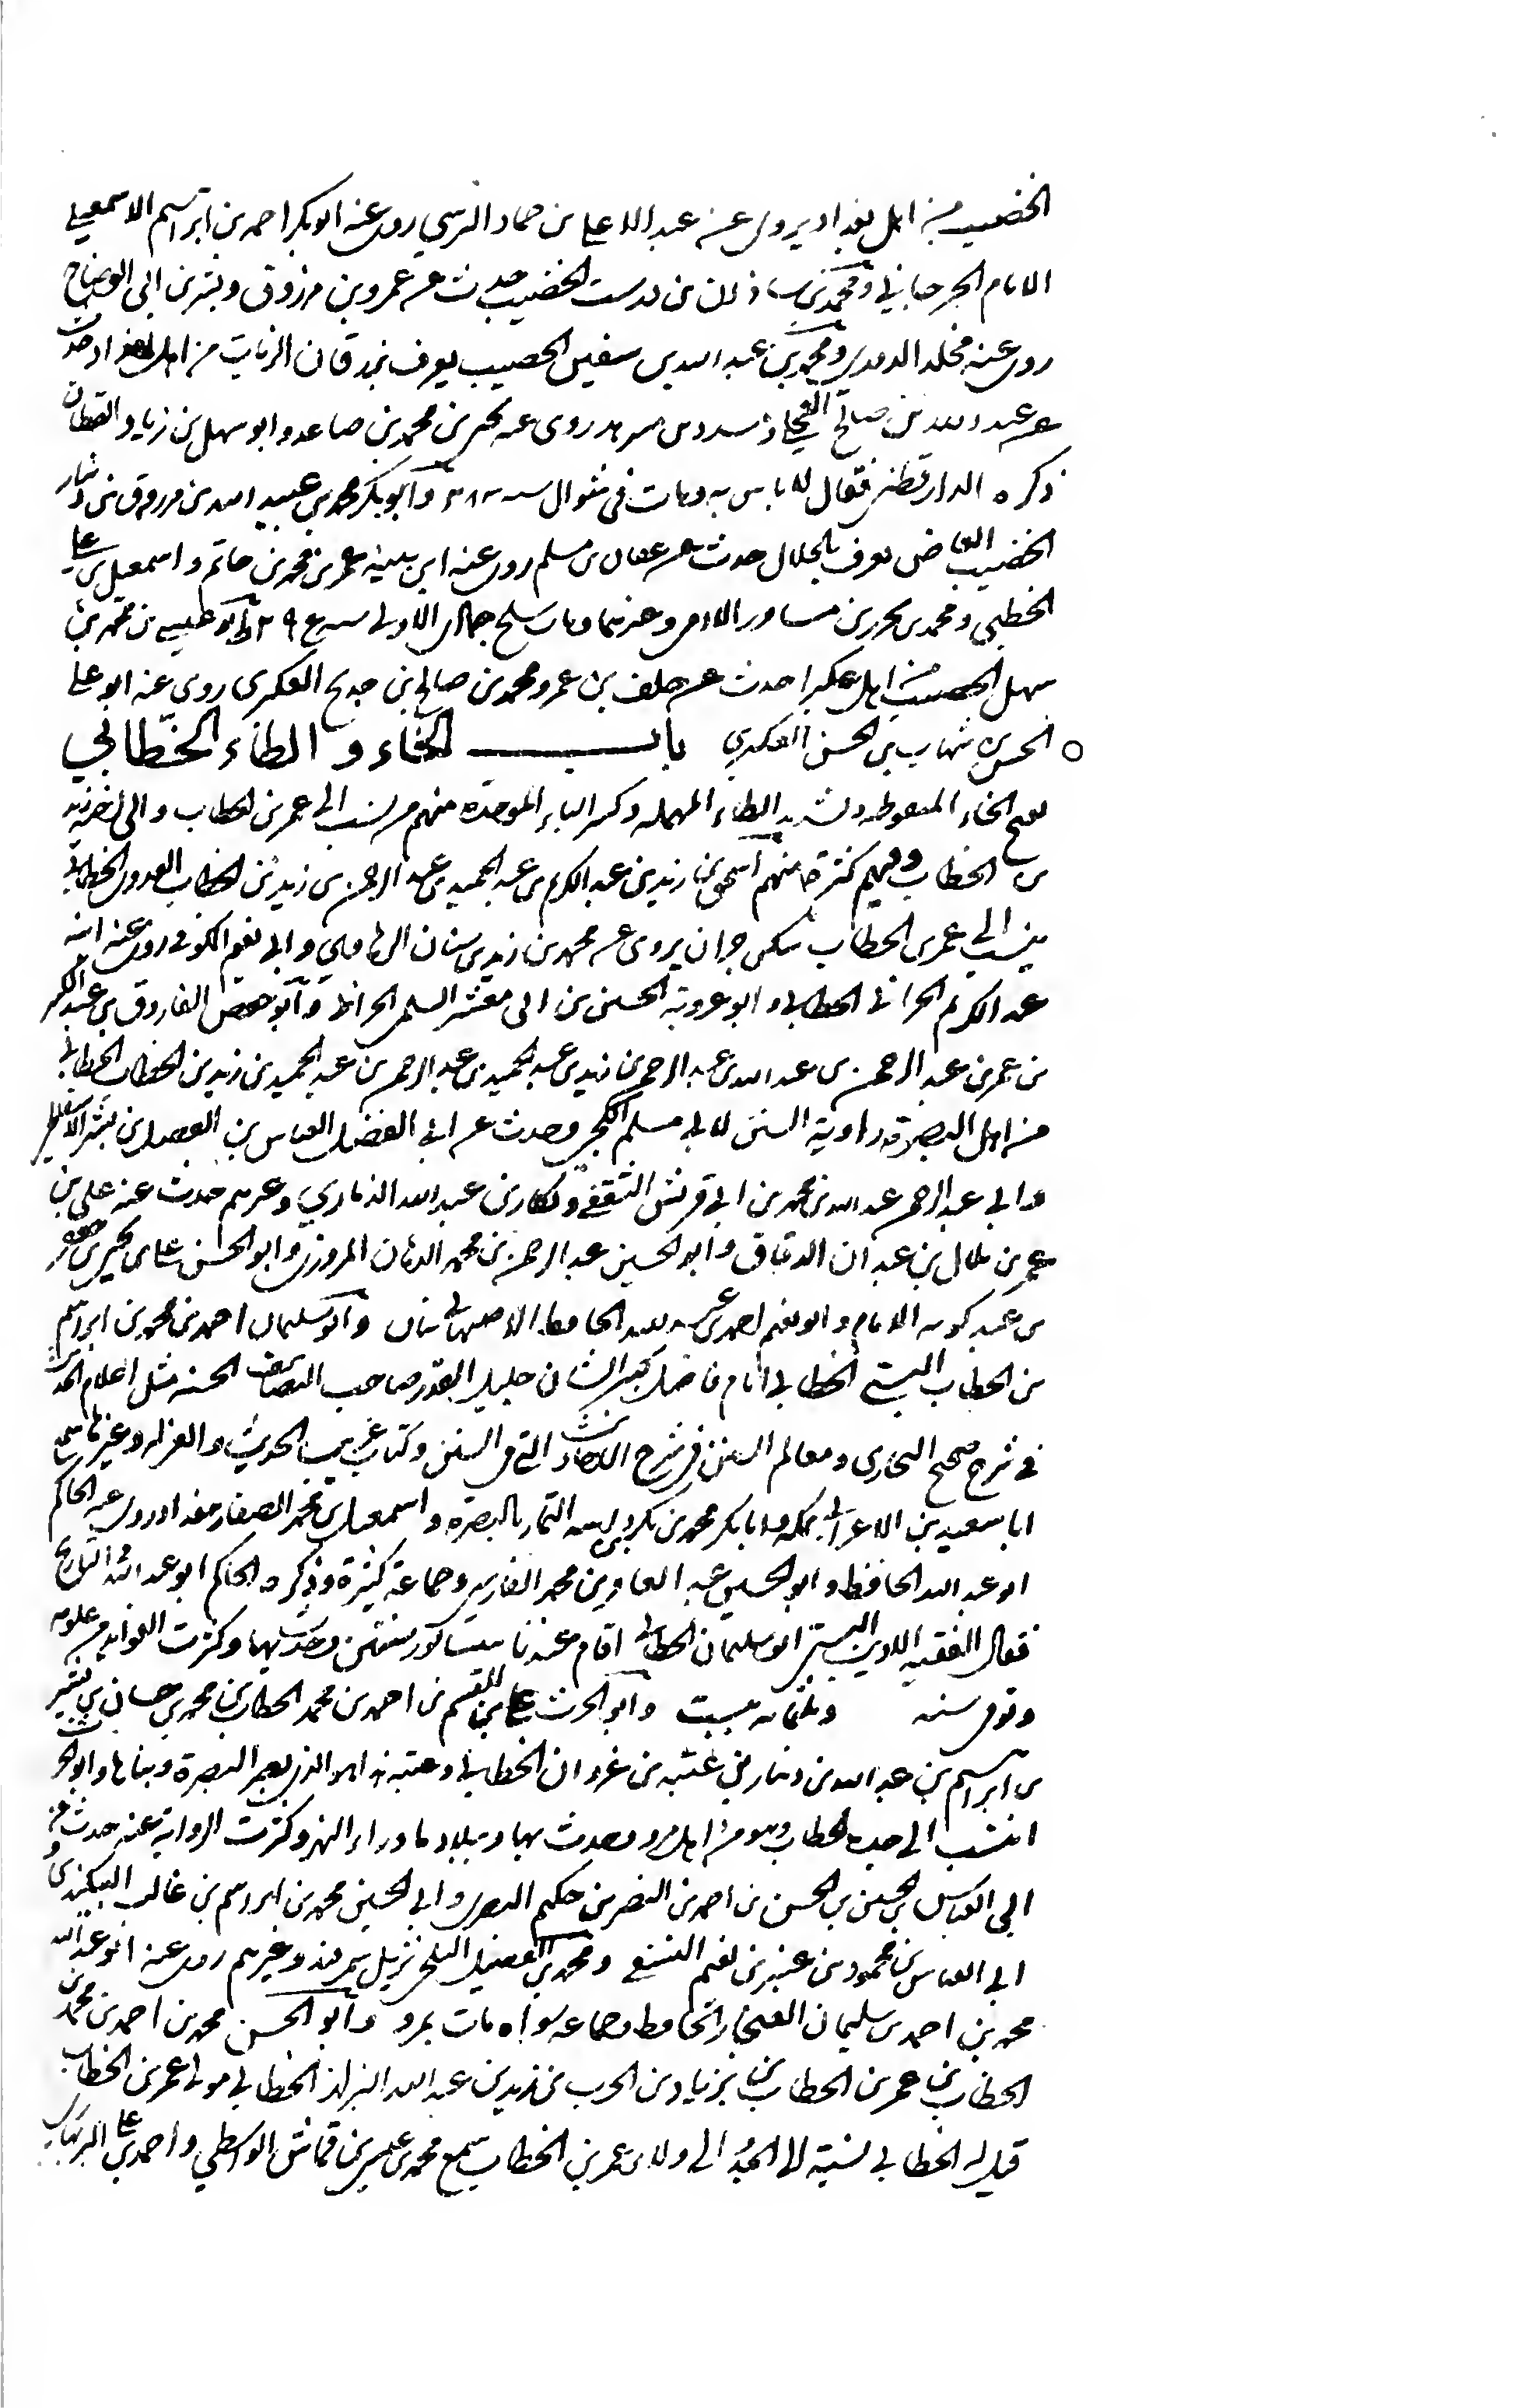 الخضيب من اهل بغداد يروى عن عبد الاعلى بن حماد النرسي روى عنه ابو بكر احمد بن ابرهيم الاسمعيلي
الامام الجرجاني ومحمد بن شاذان بن درست الخضيب حدث عن عمرو بن مرزوق وبشر بن ابى الوضاح
روى عنه مخلد ومحمد بن عبد الله بن سفين الخضيب يعرف بزرقان الزيات من اهل بغداد حدث
عن عبد الله بن صالح العجلي روى عنه يحيى بن محمد بن صاعد وابو سهل بن زياد القطان
ذكره الدارقطني فقال لا باس به ومات فى شوال سنة وابو بكر محمد بن عبيد الله بن مرزوق بن دينار
الخضيب القاضى يعرف بالخلال حدث عن عفان بن مسلم روى عنه ابن ابنه عمر بن محمد بن حاتم واسمعيل بن علي
الخطبي ومحمد بن وغيرهما ومات سلخ جمادى الاولى سنة وابو عيسى بن محمد بن
سهل الخضيب من اهل عكبرا حدث عن خلف بن عمرو ومحمد بن صالح بن ذريح العكبرى روى عنه ابو على
الحسن بن شهاب بن الحسن العكبري باب الخاء و الطاء الخطّابي
بفتح الخاء المنقوطه وتشديد الطاء المهمله وكسر الباء الموحده منهم من نسب الى عمر بن الخطاب والى اخيه زيد
بن الخطاب وفيهم كثرة منهم اسحق بن زيد بن عبد الكريم بن عبد الحميد بن عبد الرحمن بن زيد بن الخطاب العدوى الخطابي
ينسب الى عمر بن الخطاب سكن حران يروى عن محمد بن زيد بن سنان الرهاوي وابى نعيم الكوفى روى عنه ابنه
عبد الكريم الحرانى الخطابي وابو عروبة الحسين بن ابى معشر السلمى الحرانى وابو حفص الفاروق بن عبد الكبير
بن عمر بن عبد الرحمن بن عبد الله بن عبد الرحمن بن زيد بن عبد الحميد بن عبد الرحمن بن عبد الحميد بن زيد بن الخطاب الخطابي
من اهل البصرة راوية السنن لابى مسلم الكجي وحدث عن ابى الفضل العباس بن الفضل بن بشر الاسفاطي
وابى عبد الرحمن عبد الله بن محمد بن ابى قريش الثقفي وبكار بن عبد الله الذماري وغيرهم حدث عنه على بن
عمر بن بلال بن عبدان الدقاق وابو الحسين عبد الرحمن بن محمد الدهان المروزى وابو الحسن على بن يحيى بن جعفر
بن عبد كويه الامام وابو نعيم احمد بن عبد الله الحافظ الاصبهانيان وابو سليمان احمد بن محمد بن ابرهيم
بن الخطاب البستي الخطابي امام فاضل كبير الشان جليل القدر صاحب التصانيف الحسنه مثل اعلام الحديث
فى شرح صحيح البخارى ومعالم السنن فى شرح الاحاديث التى فى السنن وكتاب غريب الحديث والعزله وغيرها سمع
ابا سعيد بن الاعرابى بمكه وابا بكر محمد بن بكر بن داسه التمار بالبصره واسمعيل بن محمد الصفار ببغداد روى عنه الحاكم
ابو عبد الله الحافظ وابو الحسين عبد الغافر بن محمد الفارسى وجماعة كثيرة وذكره الحاكم ابو عبد الله فى التاريخ
فقال الفقيه الاديب البستي ابو سليمان الخطابى اقام عندنا بنيسابور سنتين وحدث بها وكثرت الفوايد من علومه
وتوفى سنه وثلثمائه ببست وابو الحرث على بن القسم بن احمد بن محمد الخطاب بن محمد بن حسان بن بشير
بن ابرهيم بن عبد الله بن دينار بن عتبه بن غزوان الخطابي وعتبه هو الذى بصر البصرة وبناها وابو الحرث
انتسب الى جده الخطاب وهو من اهل مرو وحدث بها وببلاد ما وراء النهر وكثرت الرواية عنه حدث عن
ابى العباس الحسين بن الحسن بن احمد بن النضر بن حكيم النصرى وابى الحسين محمد بن ابرهيم بن غالب البيكندى و
ابى العباس بن محمود بن عنبر بن نعيم النسفي ومحمد بن الفضيل البلخى نزيل سمرقند وغيرهم روى عنه ابو عبد الله
محمد بن احمد بن سليمان الغنجار الحافظ وجماعه سواه مات بمرو وابو الحسن محمد بن احمد بن محمد بن
الخطاب بن عمر بن الخطاب بن زياد بن الحرب بن زيد بن عبد الله البزاز الخطابي مولى عمر بن الخطاب
قيل له الخطابى نسبة الى الجد الى ولاء عمر بن الخطاب سمع محمد بن عيسى بن قماش الواسطي واحمد بن علي البربهاري